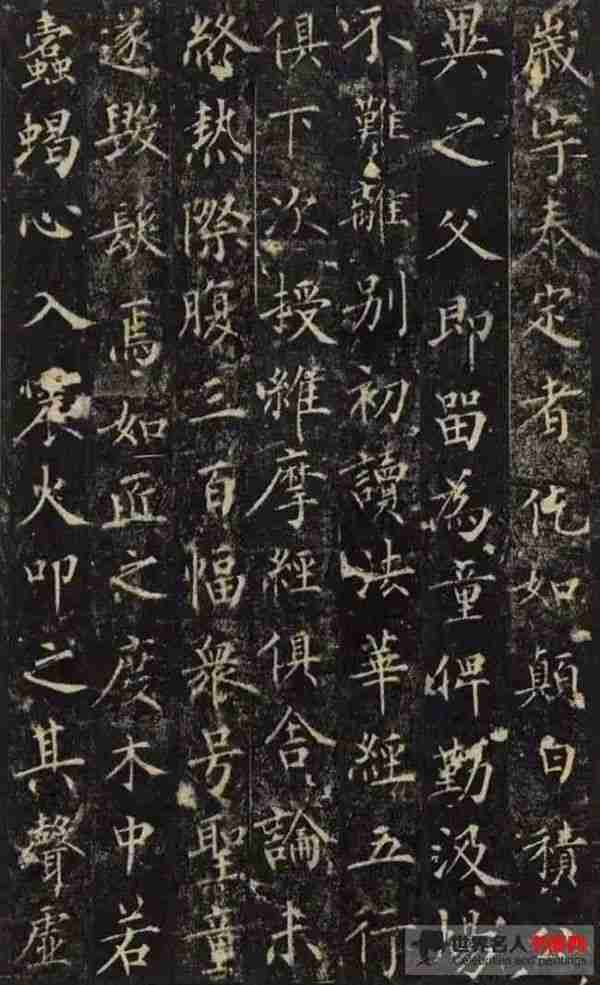 歲宇泰定者仡如顛白積
異之父即畱為童俾勤汲
不難離別初讀法華經五行
俱下次授維摩經俱舍論未
終熱際腹三百幅衆号聖童
遂毀髮焉如匠之度木中若
蠹蝎心入火叩之其聲虛
世界名人
Celebrities and paintings